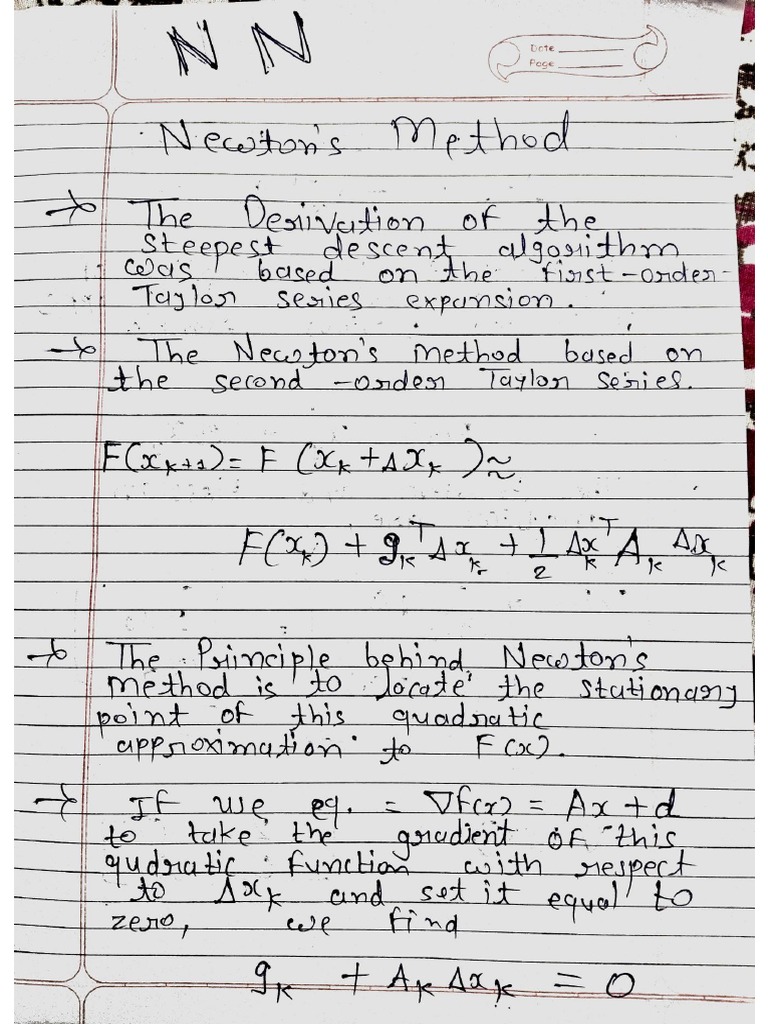 N N
Date
Page
Newton's Method
→ The Derivation of the
steepest descent algorithm
was based on the first-order-
Taylor series expansion.
→ The Newton's method based on
the second -order Taylor series.
F(x_{k+1}) = F (x_k + Δx_k) ≈
F(x_k) + g_k^T Δx_k + 1/2 Δx_k^T A_k Δx_k
→ The Principle behind Newton's
method is to locate the stationary
point of this quadratic
approximation to F(x).
→ If we eq. = ∇f(x) = Ax + d
to take the gradient of this
qudratic function with respect
to Δx_k and set it equal to
zero, we find
g_k + A_k Δx_k = 0